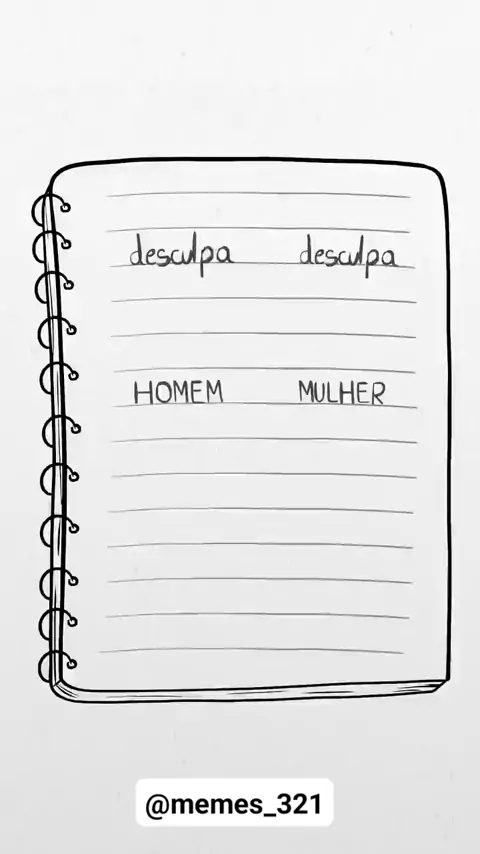 desculpa desculpa
HOMEM MULHER
@memes_321